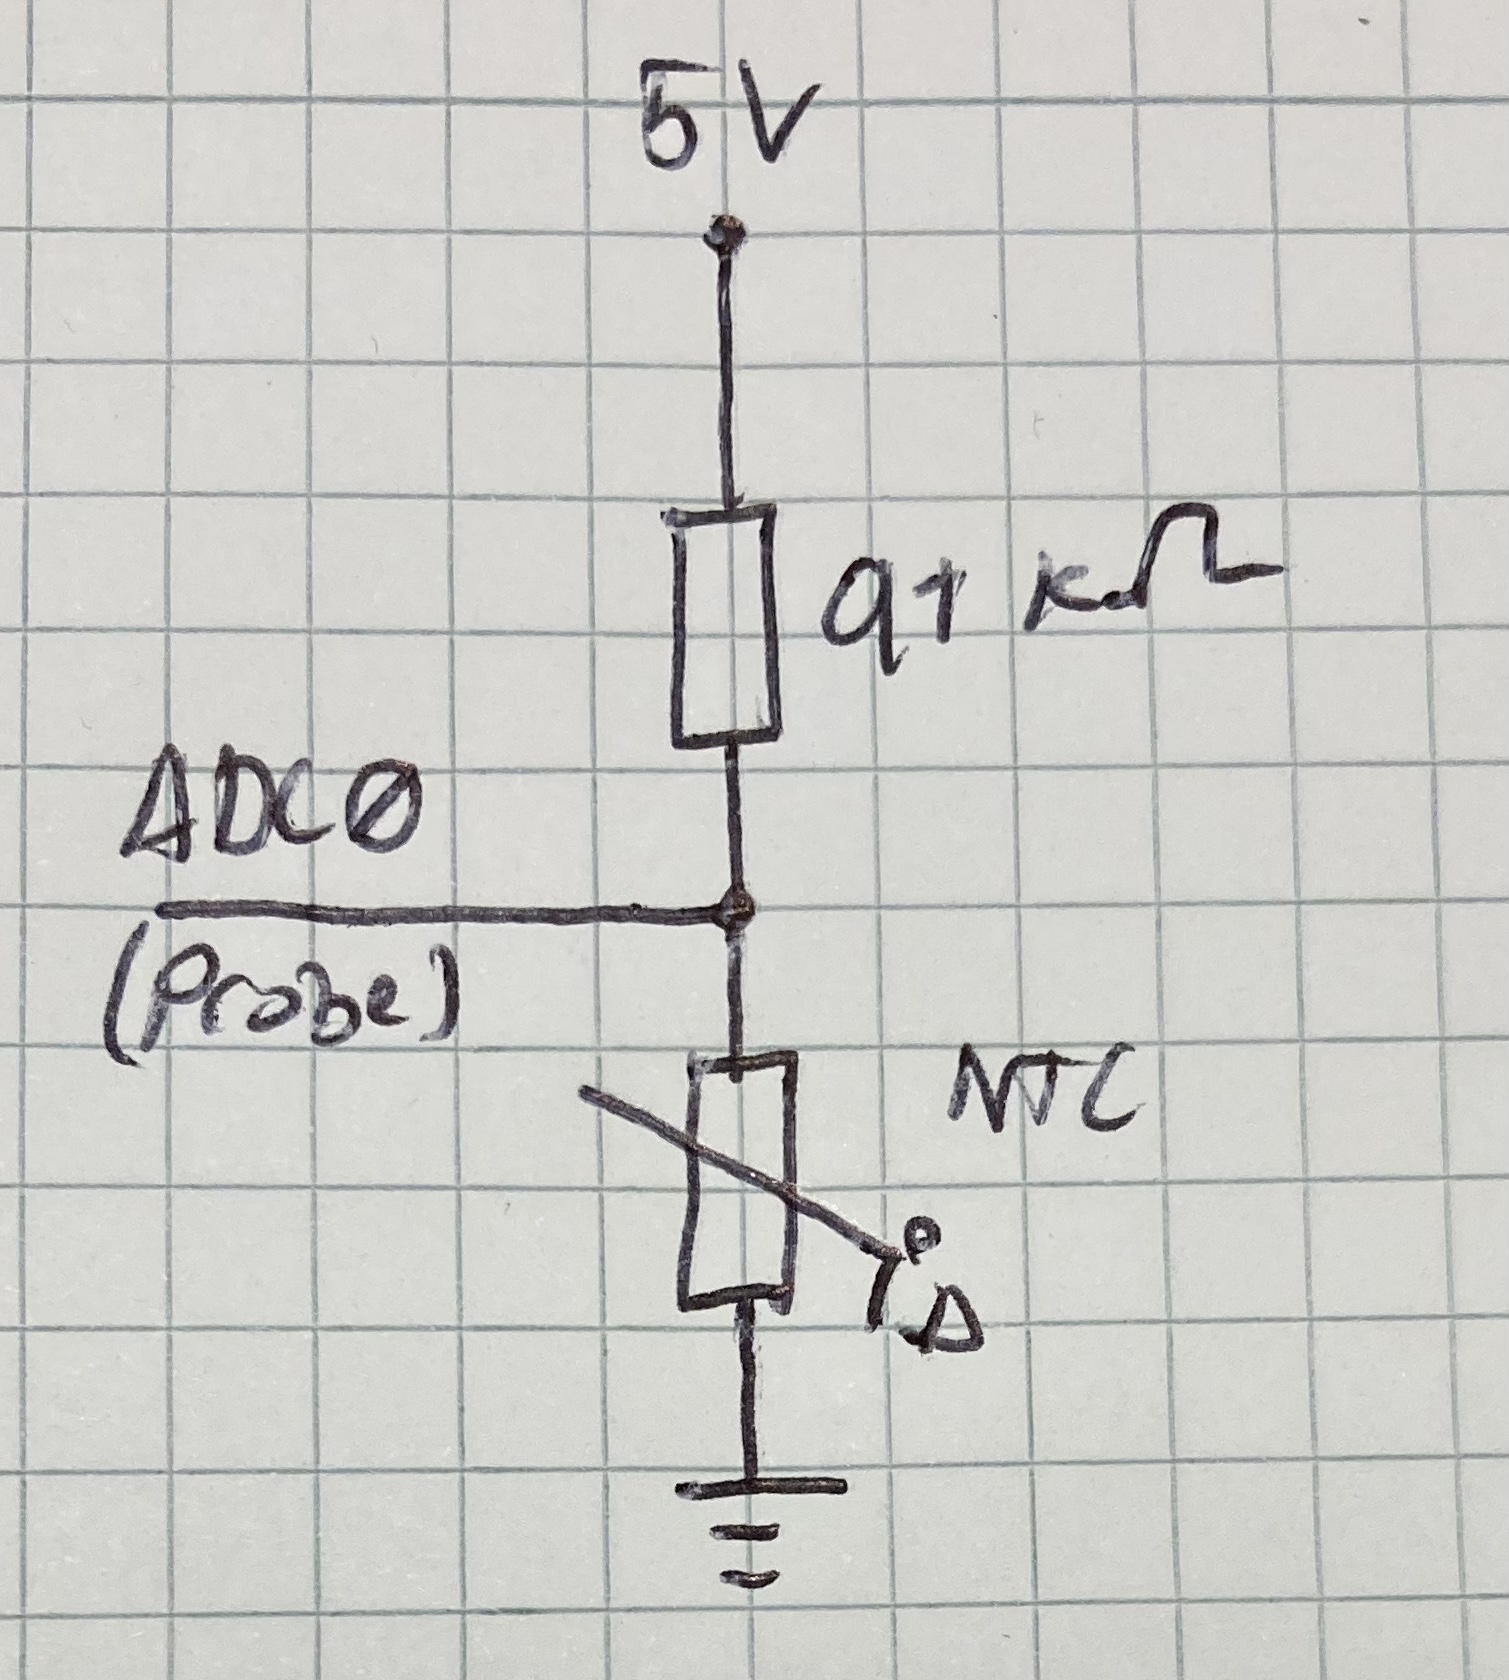 5V
91 KΩ
ADC0
(Probe)
NTC